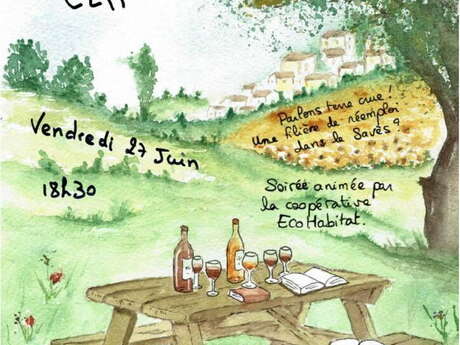 Parlons terre crue !
Une filière de réemploi
dans le Savès ?
Vendredi 27 Juin
18h30
Soirée animée par
la coopérative
EcoHabitat.